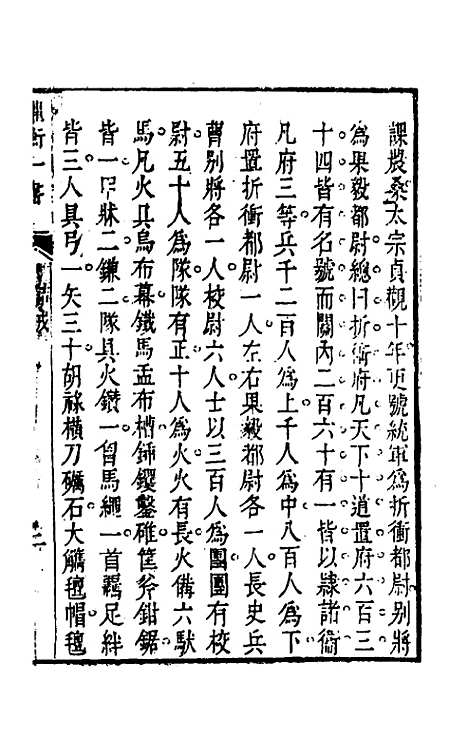 課農桑太宗貞觀十年更號統軍為折衝都尉別將
為果毅都尉總曰折衝府凡天下十道置府六百三
十四皆有名號而關內二百六十有一皆以隸諸衞
凡府三等兵千二百人為上千人為中八百人為下
府置折衝都尉一人左右果毅都尉各一人長史兵
曹別將各一人校尉六人士以三百人為團團有校
尉五十人為隊隊有正十人為火火有長火備六馱
馬凡火具烏布幕鐵馬盂布槽鍤钁鑿碓筐斧鉗鋸
皆一甲牀二鎌二隊具火鑽一胷馬繩一首羈足絆
皆三人具弓一矢三十胡祿橫刀礪石大觿氊帽氊